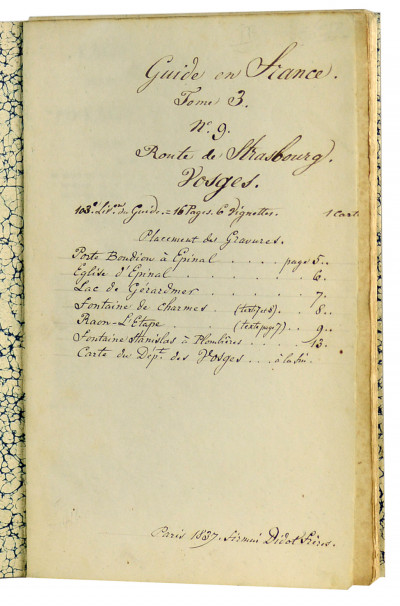 Guide en France.
Tome 3.
N°. 9.
Route de Strasbourg.
Vosges.
103e. Liv.on du Guide = 16 Pages. 6 Vignettes. 1 Carte
Placement des Gravures.
Porte Boudiou à Epinal . . . . page 5...
Eglise d'Epinal . . . . . . . . 6...
Lac de Gérardmer . . . . . . . 7...
Fontaine de Charmes . (texte p. 8) . 8...
Raon-L'Etape (texte page 7) . . 9...
Fontaine Stanislas à Plombières . . . . . 13.
Carte du Dépt. des Vosges . . . à la fin.
Paris 1837. Firmin Didot Frères.